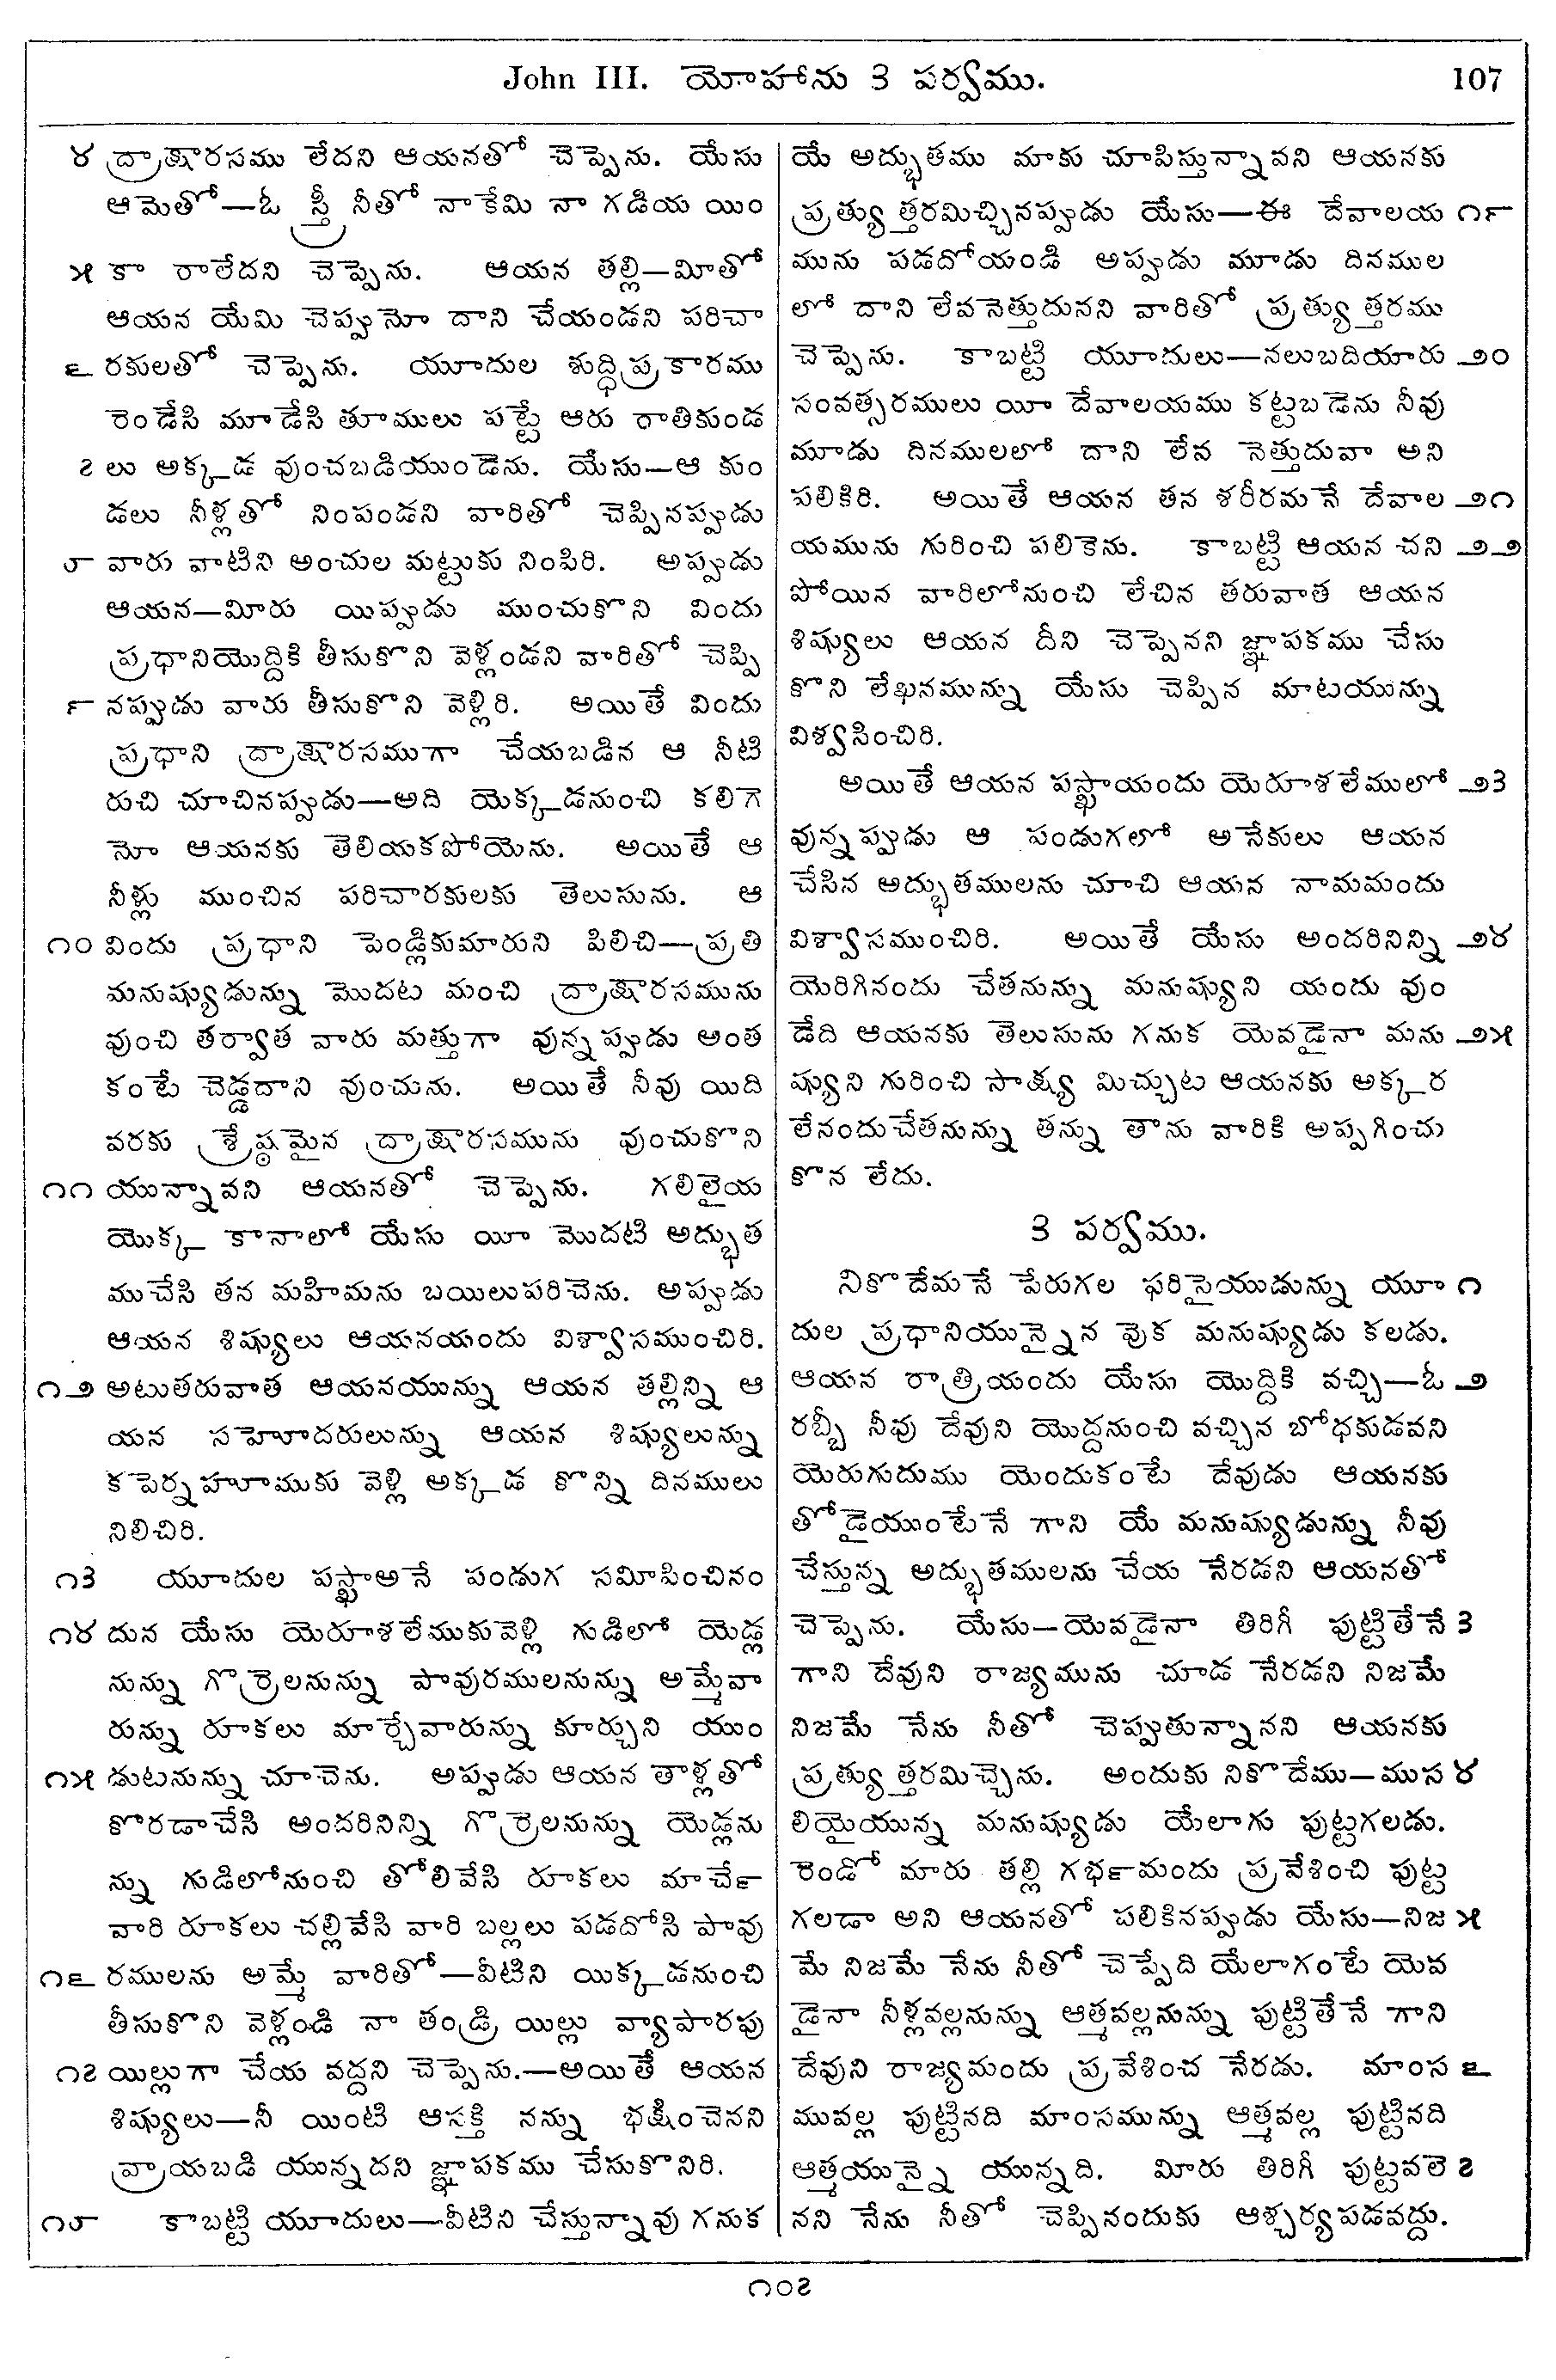 John III. యోహాను 3 పర్వము. 107
౪ ద్రాక్షారసము లేదని ఆయనతో చెప్పెను. యేసు
ఆమెతో—ఓ స్త్రీ నీతో నాకేమి నా గడియ యిం
౫ కా రాలేదని చెప్పెను. ఆయన తల్లి—మీతో
ఆయన యేమి చెప్పునో దాని చేయండని పరిచా
౬ రకులతో చెప్పెను. యూదుల శుద్ధిప్రకారము
రెండేసి మూడేసి తూములు పట్టే ఆరు రాతికుండ
౭ లు అక్కడ వుంచబడియుండెను. యేసు—ఆ కుం
డలు నీళ్లతో నింపండని వారితో చెప్పినప్పుడు
౮ వారు వాటిని అంచుల మట్టుకు నింపిరి. అప్పుడు
ఆయన—మీరు యిప్పుడు ముంచుకొని విందు
ప్రధానియొద్దికి తీసుకొని వెళ్లండని వారితో చెప్పి
౯ నప్పుడు వారు తీసుకొని వెళ్లిరి. అయితే విందు
ప్రధాని ద్రాక్షారసముగా చేయబడిన ఆ నీటి
రుచి చూచినప్పుడు—అది యెక్కడనుంచి కలిగె
నో ఆయనకు తెలియకపోయెను. అయితే ఆ
నీళ్లు ముంచిన పరిచారకులకు తెలుసును. ఆ
౧౦ విందు ప్రధాని పెండ్లికుమారుని పిలిచి—ప్రతి
మనుష్యుడున్ను మొదట మంచి ద్రాక్షారసమును
వుంచి తర్వాత వారు మత్తుగా వున్నప్పుడు అంత
కంటే చెడ్డదాని వుంచును. అయితే నీవు యిది
వరకు శ్రేష్ఠమైన ద్రాక్షారసమును వుంచుకొని
౧౧ యున్నావని ఆయనతో చెప్పెను. గలిలైయ
యొక్క కానాలో యేసు యీ మొదటి అద్భుత
ముచేసి తన మహిమను బయిలుపరిచెను. అప్పుడు
ఆయన శిష్యులు ఆయనయందు విశ్వాసముంచిరి.
౧౨ అటుతరువాత ఆయనయున్ను ఆయన తల్లిన్ని ఆ
యన సహోదరులున్ను ఆయన శిష్యులున్ను
కపెర్నహూముకు వెళ్లి అక్కడ కొన్ని దినములు
నిలిచిరి.
౧3 యూదుల పస్ఖాఅనే పండుగ సమీపించినం
౧౪ దున యేసు యెరూశలేముకువెళ్లి గుడిలో యెడ్ల
నున్ను గొర్రెలనున్ను పావురములనున్ను అమ్మేవా
రున్ను రూకలు మార్చేవారున్ను కూర్చుని యుం
౧౫ డుటనున్ను చూచెను. అప్పుడు ఆయన తాళ్లతో
కొరడాచేసి అందరినిన్ని గొర్రెలనున్ను యెడ్లను
న్ను గుడిలోనుంచి తోలివేసి రూకలు మార్చే
వారి రూకలు చల్లివేసి వారి బల్లలు పడదోసి పావు
౧౬ రములను అమ్మే వారితో—వీటిని యిక్కడనుంచి
తీసుకొని వెళ్లండి నా తండ్రి యిల్లు వ్యాపారపు
౧౭ యిల్లుగా చేయ వద్దని చెప్పెను.—అయితే ఆయన
శిష్యులు—నీ యింటి ఆసక్తి నన్ను భక్షించెనని
వ్రాయబడి యున్నదని జ్ఞాపకము చేసుకొనిరి.
౧౮ కాబట్టి యూదులు—వీటిని చేస్తున్నావు గనుక
యే అద్భుతము మాకు చూపిస్తున్నావని ఆయనకు
ప్రత్యుత్తరమిచ్చినప్పుడు యేసు—ఈ దేవాలయ ౧౯
మును పడదోయండి అప్పుడు మూడు దినముల
లో దాని లేవనెత్తుదునని వారితో ప్రత్యుత్తరము
చెప్పెను. కాబట్టి యూదులు—నలుబదియారు ౨౦
సంవత్సరములు యీ దేవాలయము కట్టబడెను నీవు
మూడు దినములలో దాని లేవ నెత్తుదువా అని
పలికిరి. అయితే ఆయన తన శరీరమనే దేవాల ౨౧
యమును గురించి పలికెను. కాబట్టి ఆయన చని ౨౨
పోయిన వారిలోనుంచి లేచిన తరువాత ఆయన
శిష్యులు ఆయన దీని చెప్పెనని జ్ఞాపకము చేసు
కొని లేఖనమున్ను యేసు చెప్పిన మాటయున్ను
విశ్వసించిరి.
అయితే ఆయన పస్ఖాయందు యెరూశలేములో ౨3
వున్నప్పుడు ఆ పండుగలో అనేకులు ఆయన
చేసిన అద్భుతములను చూచి ఆయన నామమందు
విశ్వాసముంచిరి. అయితే యేసు అందరినిన్ని ౨౪
యెరిగినందు చేతనున్ను మనుష్యుని యందు వుం
డేది ఆయనకు తెలుసును గనుక యెవడైనా మను ౨౫
ష్యుని గురించి సాక్ష్య మిచ్చుట ఆయనకు అక్కర
లేనందుచేతనున్ను తన్ను తాను వారికి అప్పగించు
కొన లేదు.
3 పర్వము.
నికొదేమనే పేరుగల ఫరిసైయుడున్ను యూ ౧
దుల ప్రధానియున్నైన వొక మనుష్యుడు కలడు.
ఆయన రాత్రియందు యేసు యొద్దికి వచ్చి—ఓ ౨
రబ్బీ నీవు దేవుని యొద్దనుంచి వచ్చిన బోధకుడవని
యెరుగుదుము యెందుకంటే దేవుడు ఆయనకు
తోడైయుంటేనే గాని యే మనుష్యుడున్ను నీవు
చేస్తున్న అద్భుతములను చేయ నేరడని ఆయనతో
చెప్పెను. యేసు—యెవడైనా తిరిగీ పుట్టితేనే 3
గాని దేవుని రాజ్యమును చూడ నేరడని నిజమే
నిజమే నేను నీతో చెప్పుతున్నానని ఆయనకు
ప్రత్యుత్తరమిచ్చెను. అందుకు నికొదేము—ముస ౪
లియైయున్న మనుష్యుడు యేలాగు పుట్టగలడు.
రెండో మారు తల్లి గర్భమందు ప్రవేశించి పుట్ట
గలడా అని ఆయనతో పలికినప్పుడు యేసు—నిజ ౫
మే నిజమే నేను నీతో చెప్పేది యేలాగంటే యెవ
డైనా నీళ్లవల్లనున్ను ఆత్మవల్లనున్ను పుట్టితేనే గాని
దేవుని రాజ్యమందు ప్రవేశించ నేరడు. మాంస ౬
మువల్ల పుట్టినది మాంసమున్ను ఆత్మవల్ల పుట్టినది
ఆత్మయున్నై యున్నది. మీరు తిరిగీ పుట్టవలె ౭
నని నేను నీతో చెప్పినందుకు ఆశ్చర్యపడవద్దు.
౧౦౭